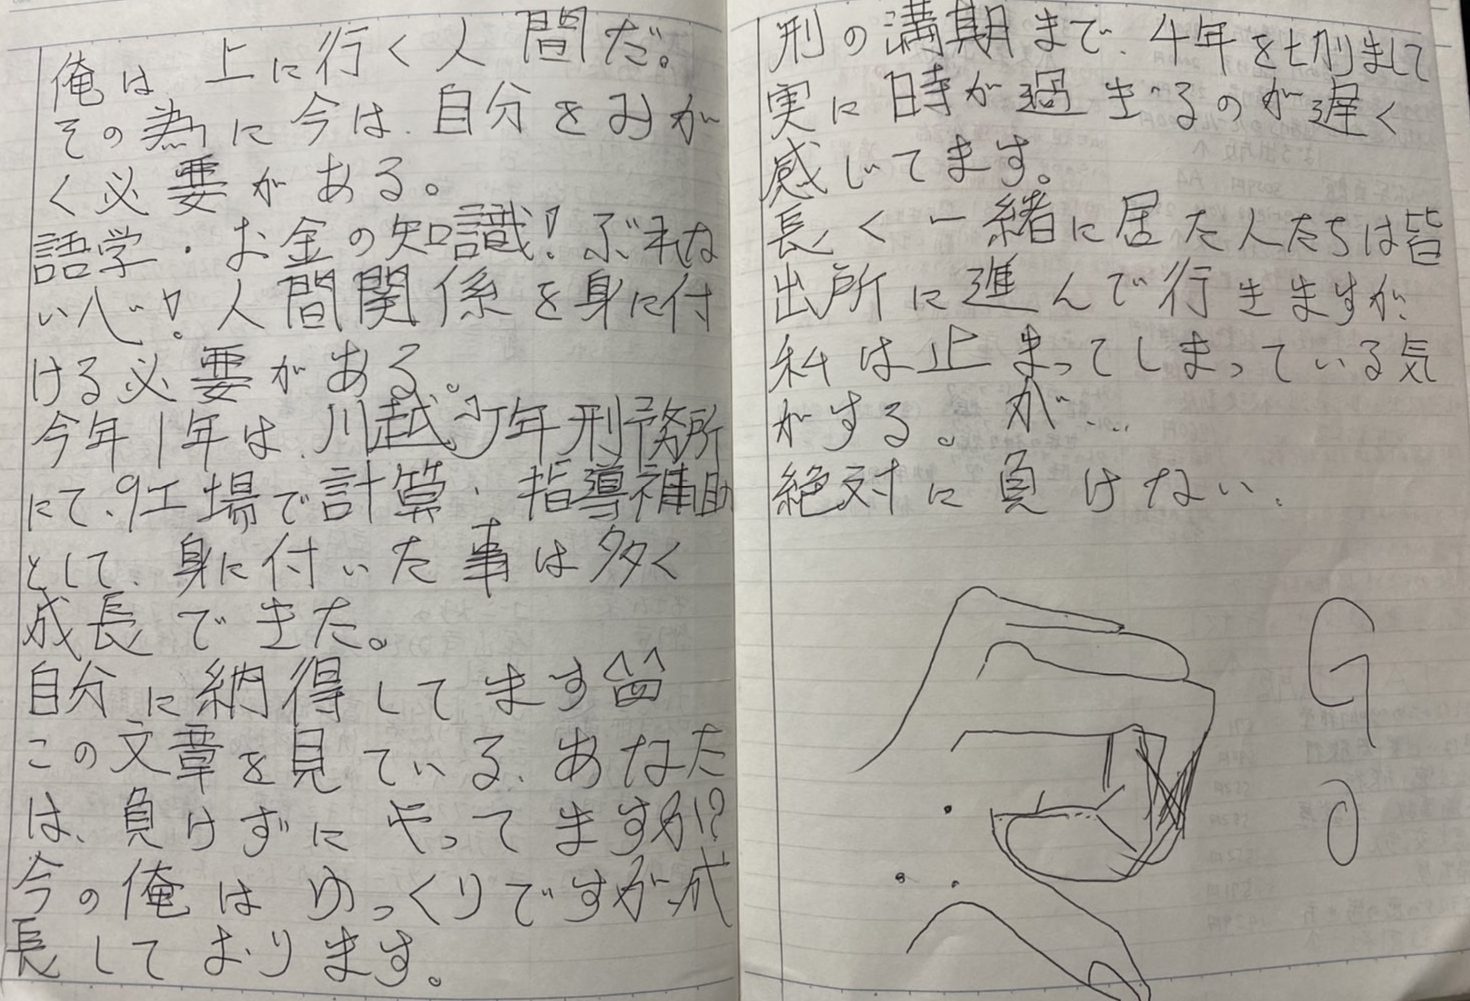 俺は 上に行く人間だ。
その為に今は、自分をみが
く必要がある。
語学・お金の知識!ぶれな
い心!人間関係を身に付
ける必要がある。
今年1年は、川越少年刑務所
にて、9工場で計算・指導補助
として、身に付いた事は多く
成長できた。
自分に納得してます
この文章を見ている、あなた
は、負けずにやってますか!?
今の俺はゆっくりですが、成
長しております。
刑の満期まで、4年を切まして
実に時が過ぎるのが遅く
感じてます。
長く一緒に居た人たちは皆
出所に進んで行きますが、
私は止まってしまっている気
がする。が…
絶対に負けない、
G
O